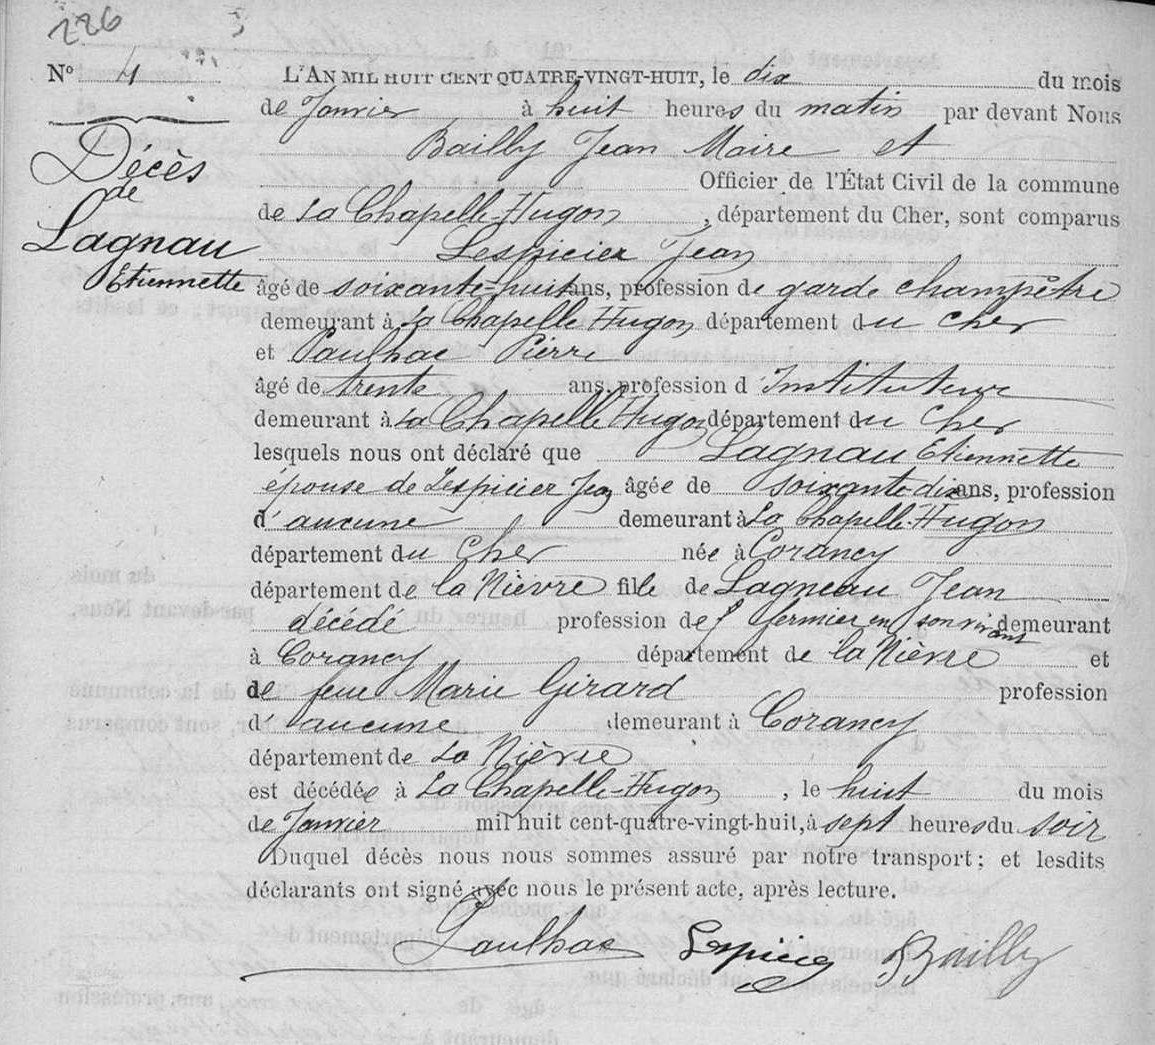 226
N° 4
L'AN MIL HUIT CENT QUATRE-VINGT-HUIT, le dix du mois
de Janvier à huit heures du matin par devant Nous
Bailly Jean Maire et
Officier de l'État Civil de la commune
de La Chapelle-Hugon, département du Cher, sont comparus
Lespicier Jean
âgé de soixante-huit ans, profession de garde champêtre
demeurant à La Chapelle Hugon département du Cher
et Paulhac Pierre
âgé de trente ans, profession d'Instituteur
demeurant à La Chapelle Hugon département du Cher
lesquels nous ont déclaré que Lagnau Etiennette
épouse de Lespicier Jean âgée de soixante-dix ans, profession
d'aucune demeurant à La Chapelle-Hugon
département du Cher née à Corancy
département de la Nièvre fille de Lagneau Jean
décédé profession de fermier en son vivant demeurant
à Corancy département de la Nièvre et
de feue Marie Girard profession
d'aucune demeurant à Corancy
département de La Nièvre
est décédée à La Chapelle-Hugon, le huit du mois
de Janvier mil huit cent-quatre-vingt-huit, à sept heures du soir
Duquel décès nous nous sommes assuré par notre transport; et lesdits
déclarants ont signé avec nous le présent acte, après lecture.
Paulhac Lespicier Bailly
Décès
de
Lagnau
Etiennette